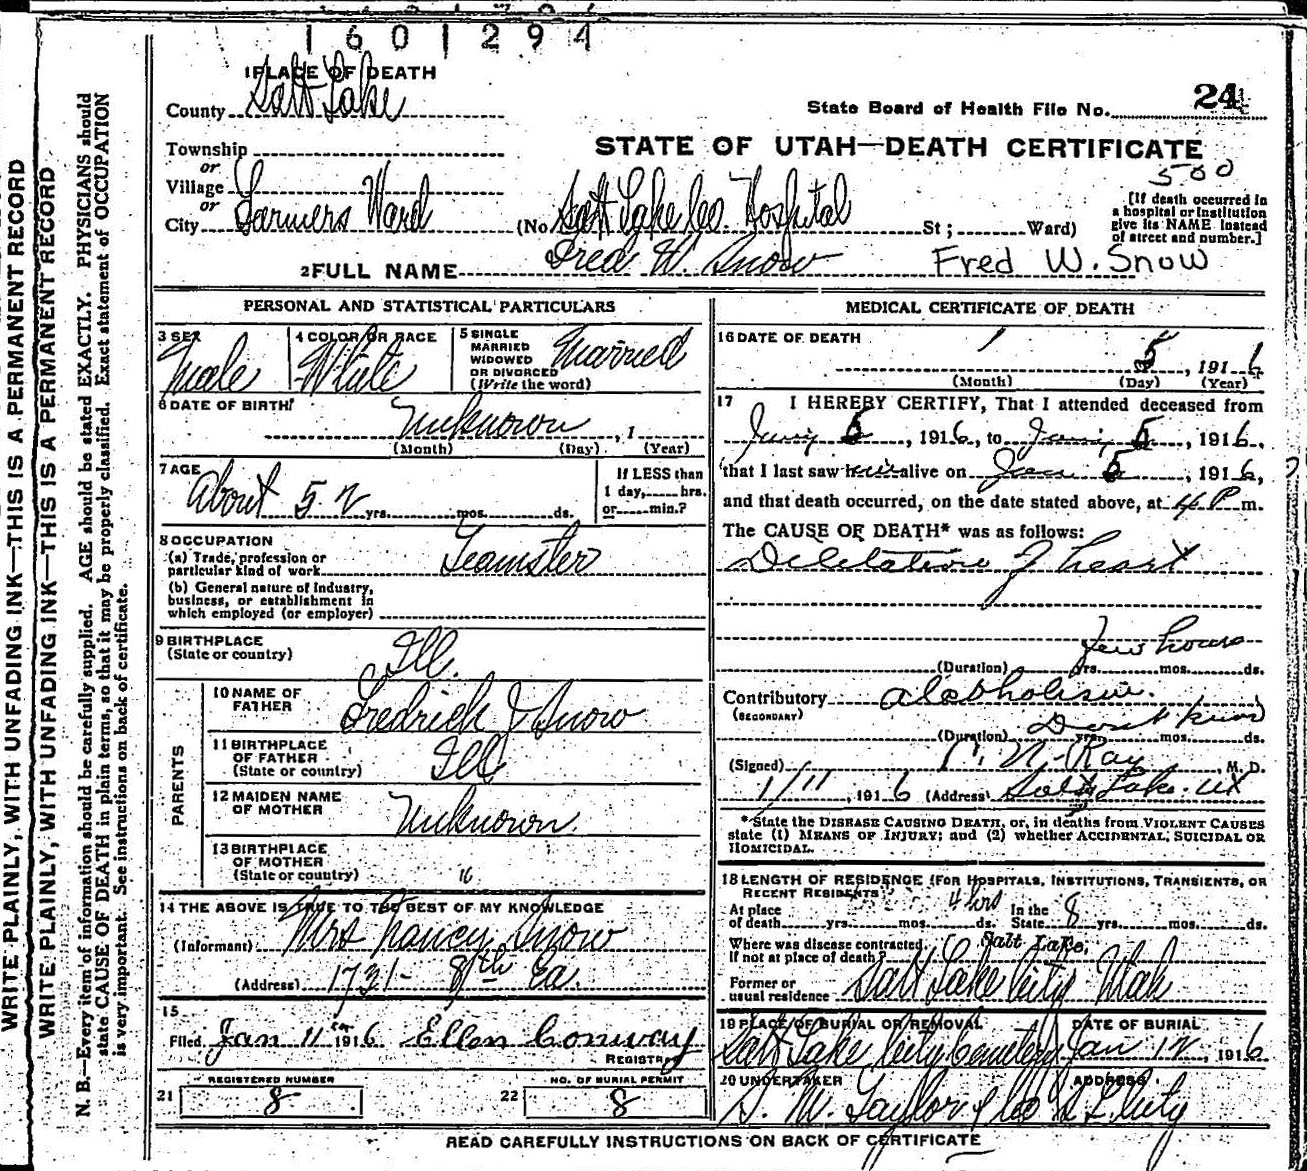 1601294
1 PLACE OF DEATH
County Salt Lake
State Board of Health File No. 24
Township
STATE OF UTAH—DEATH CERTIFICATE
500
or
Village
or
City Farmers Ward (No Salt Lake Co. Hospital St; Ward)
[If death occurred in a hospital or institution give its NAME instead of street and number.]
2 FULL NAME Fred W. Snow Fred W. Snow
PERSONAL AND STATISTICAL PARTICULARS
3 SEX Male
4 COLOR OR RACE White
5 SINGLE MARRIED WIDOWED OR DIVORCED (Write the word) Married
6 DATE OF BIRTH Unknown, 1
(Month) (Day) (Year)
7 AGE About 52 yrs. mos. ds.
If LESS than 1 day, hrs. or min.?
8 OCCUPATION
(a) Trade, profession or particular kind of work Teamster
(b) General nature of industry, business, or establishment in which employed (or employer)
9 BIRTHPLACE (State or country) Ill.
PARENTS
10 NAME OF FATHER Fredrick J Snow
11 BIRTHPLACE OF FATHER (State or country) Ill
12 MAIDEN NAME OF MOTHER Unknown
13 BIRTHPLACE OF MOTHER (State or country) "
14 THE ABOVE IS TRUE TO THE BEST OF MY KNOWLEDGE
(Informant) Mrs Nancy Snow
(Address) 1731- 8th Ea.
15
Filed Jan 11 1916 Ellen Conway
REGISTRAR
REGISTERED NUMBER
21 8
NO. OF BURIAL PERMIT
22 8
MEDICAL CERTIFICATE OF DEATH
16 DATE OF DEATH 1 5, 1916
(Month) (Day) (Year)
17 I HEREBY CERTIFY, That I attended deceased from
5, 1916, to 5, 1916,
that I last saw him alive on Jan 5, 1916,
and that death occurred, on the date stated above, at 4 P m.
The CAUSE OF DEATH* was as follows:
Diletation of heart
few hours
(Duration) yrs. mos. ds.
Contributory alcoholism.
(SECONDARY)
Dont know
(Duration) yrs. mos. ds.
(Signed) N. Ray, M. D.
1/11, 1916 (Address) Salt Lake. Ut
*State the DISEASE CAUSING DEATH, or, in deaths from VIOLENT CAUSES
state (1) MEANS OF INJURY; and (2) whether ACCIDENTAL, SUICIDAL OR
HOMICIDAL.
18 LENGTH OF RESIDENCE (FOR HOSPITALS, INSTITUTIONS, TRANSIENTS, OR
RECENT RESIDENTS
At place of death yrs. mos. ds. 4 hrs In the State 8 yrs. mos. ds.
Where was disease contracted, If not at place of death? Salt Lake.
Former or usual residence Salt Lake City Utah
19 PLACE OF BURIAL OR REMOVAL Salt Lake City Cemetery
DATE OF BURIAL Jan 12, 1916
20 UNDERTAKER S. M. Taylor & Co
ADDRESS S L City
READ CAREFULLY INSTRUCTIONS ON BACK OF CERTIFICATE
WRITE PLAINLY, WITH UNFADING INK—THIS IS A PERMANENT RECORD
WRITE PLAINLY, WITH UNFADING INK—THIS IS A PERMANENT RECORD
N. B.—Every item of information should be carefully supplied. AGE should be stated EXACTLY. PHYSICIANS should
state CAUSE OF DEATH in plain terms, so that it may be properly classified. Exact statement of OCCUPATION
is very important. See instructions on back of certificate.